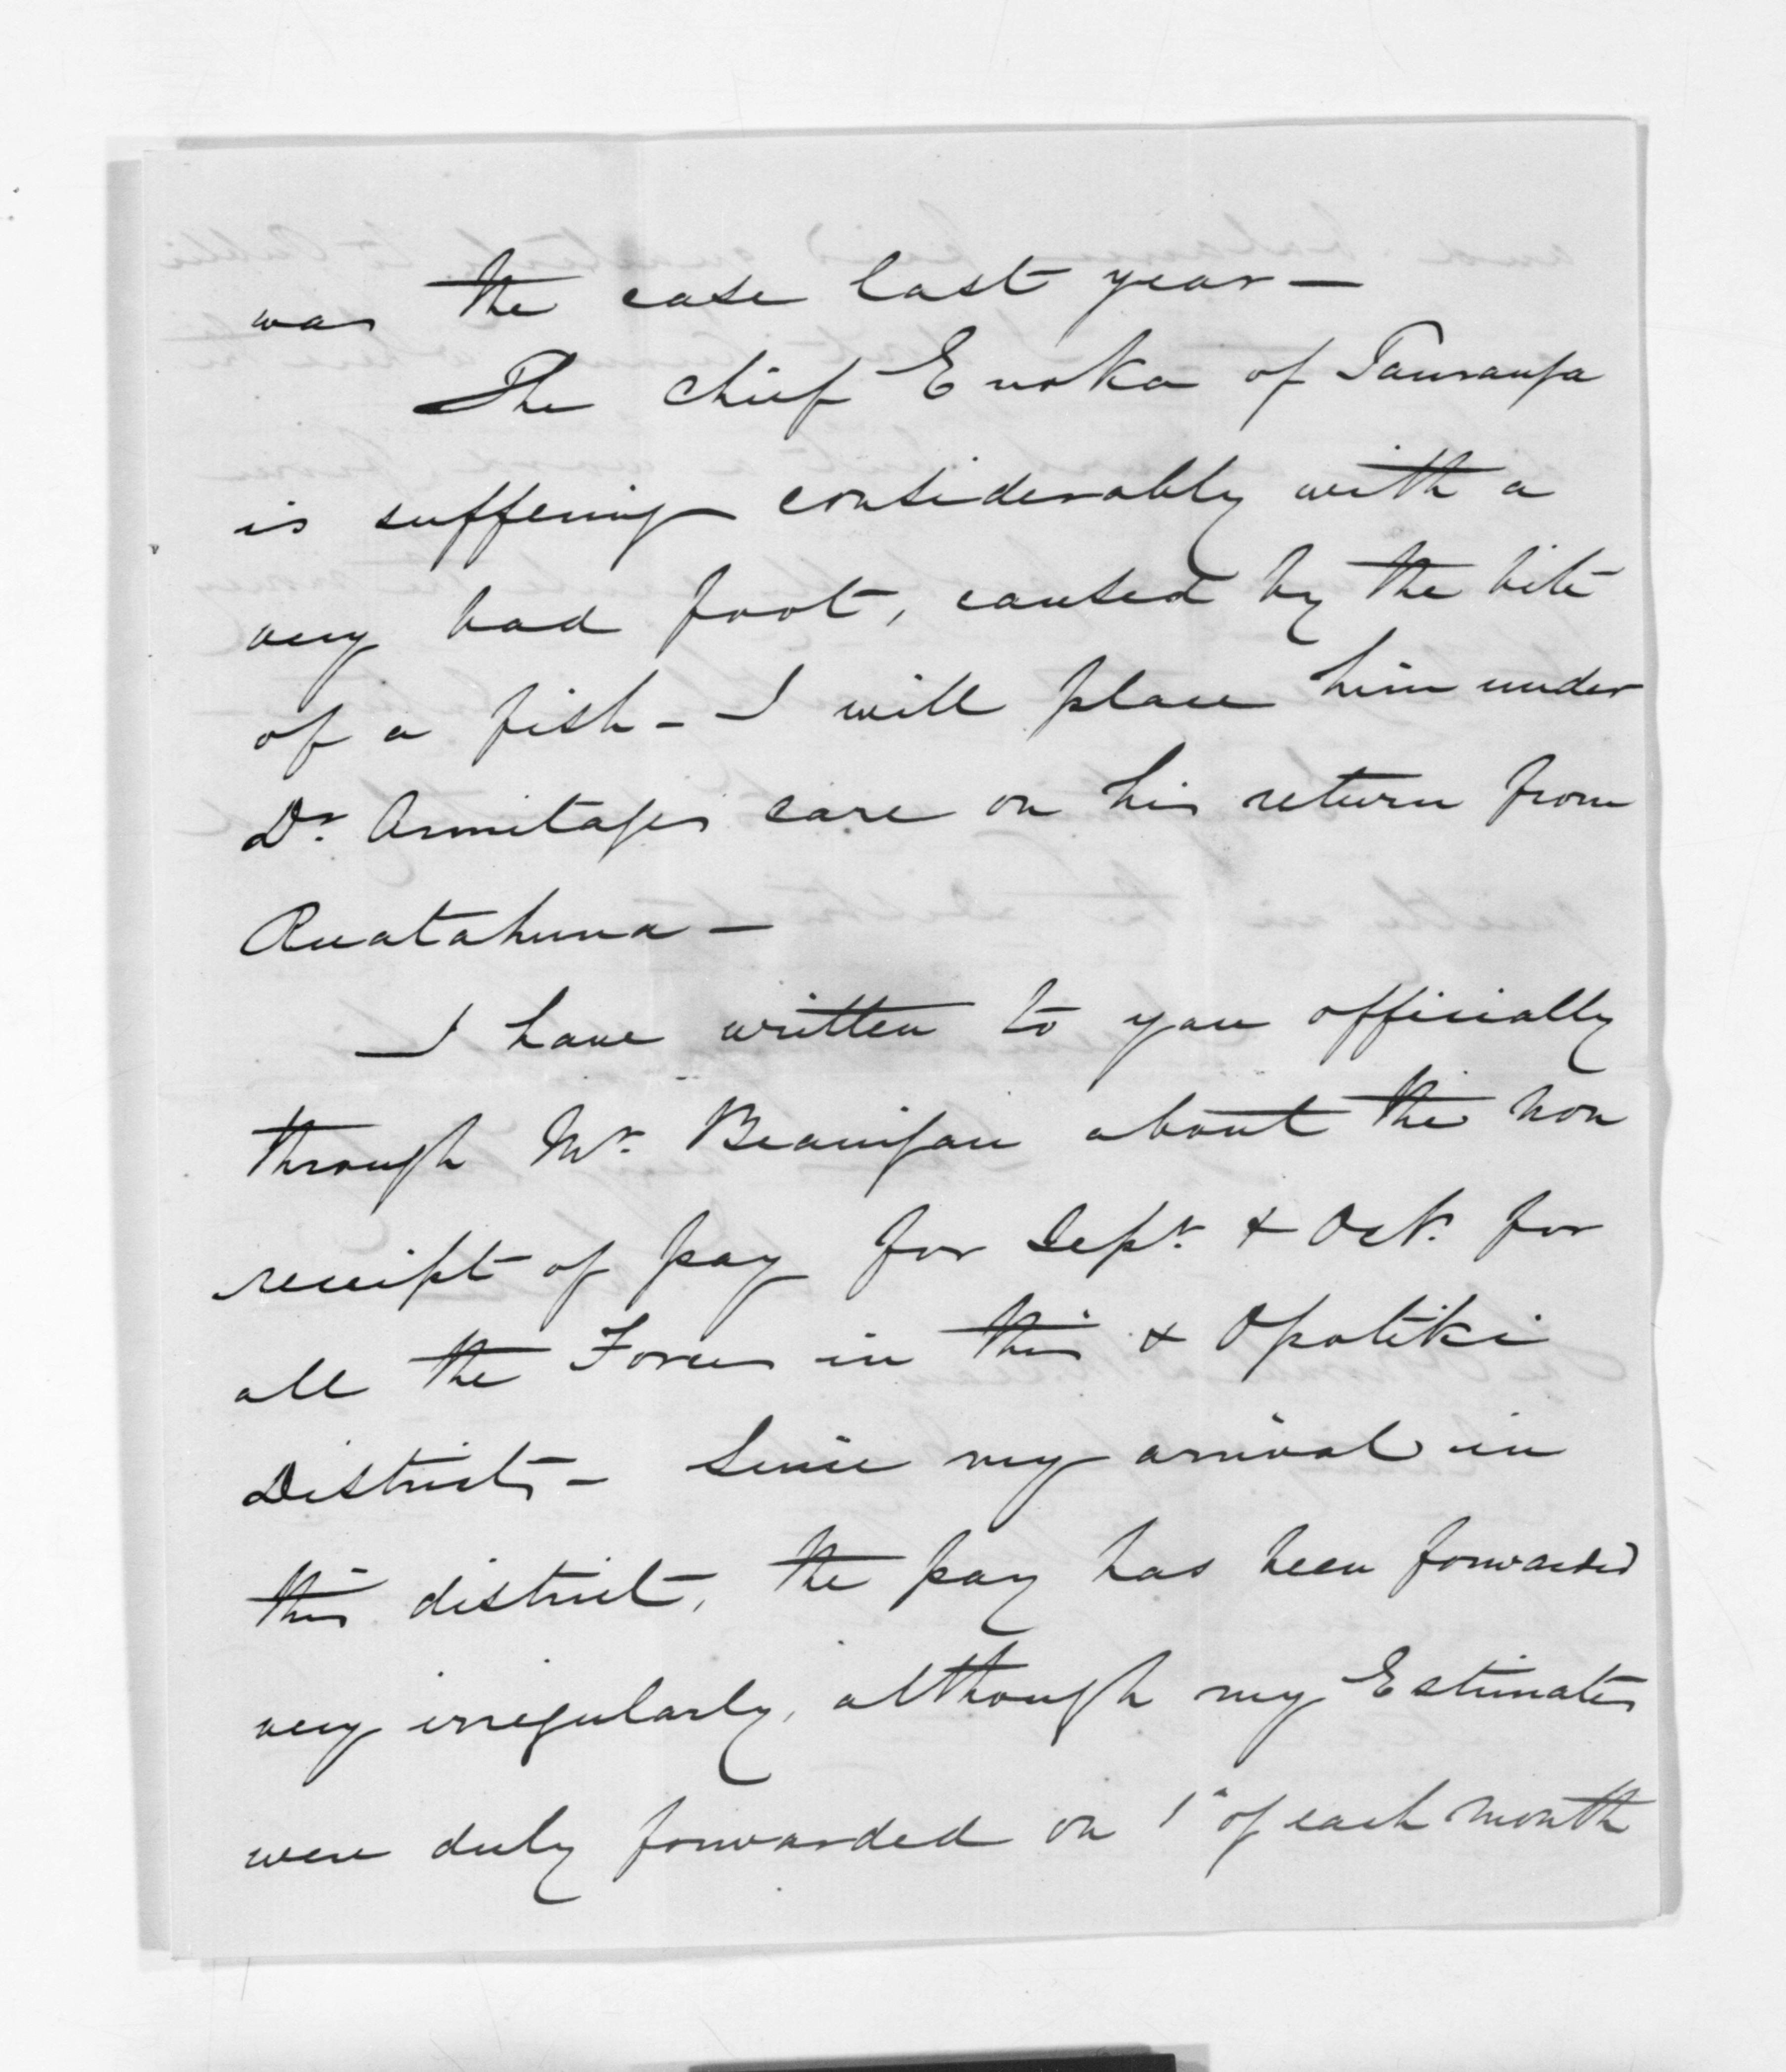 was the case last year —
The chief Enoka of Tauranga
is suffering considerably with a
very bad foot, caused by the bite
of a fish - I will place him under
Dr. Armitages care on his return from
Ruatahuna —
I have written to you officially
through Mr. about the non
receipt of pay for Sept. & Oct. for
all the Forces in this & Opotiki
Districts - Since my arrival in
this district, the pay has been forwarded
very irregularly, although my Estimates
were duly forwarded on 1st of each month